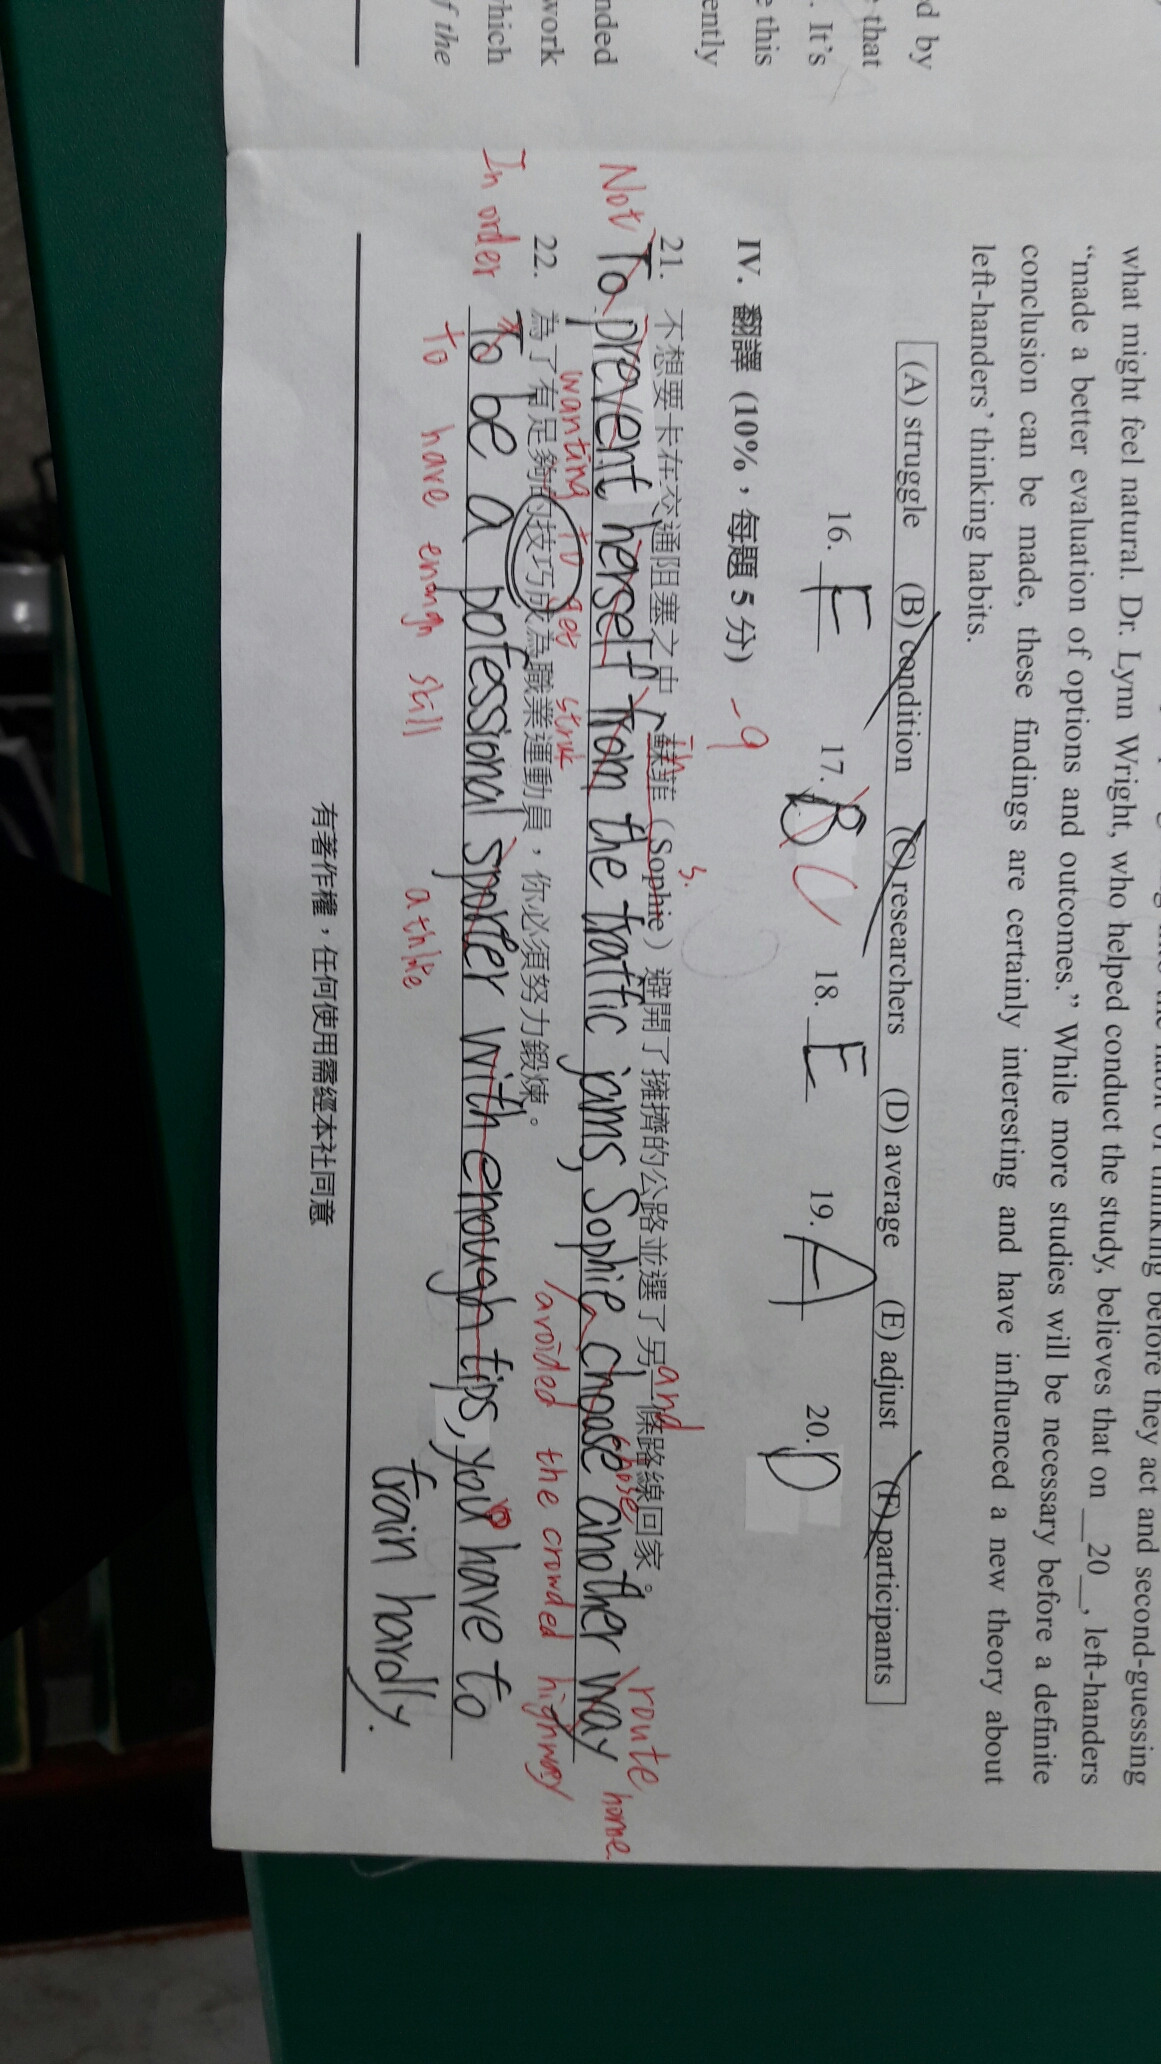 what might feel natural. Dr. Lynn Wright, who helped conduct the study, believes that on __20__, left-handers
“made a better evaluation of options and outcomes.” While more studies will be necessary before a definite
conclusion can be made, these findings are certainly interesting and have influenced a new theory about
left-handers’ thinking habits.
(A) struggle (B) condition (C) researchers (D) average (E) adjust (F) participants
16. E 17. B C 18. E 19. A 20. D
IV. 翻譯 (10%，每題 5 分) -9
21. 不想要卡在交通阻塞之中，蘇菲（Sophie）避開了擁擠的公路並選了另一條路線回家。
in s. and chose route home.
Not To prevent herself from the traffic jams, Sophie choose another way
wanting to get avoided the crowded highway
22. 為了有足夠的技巧成為職業運動員，你必須努力鍛煉。
In order To be a pofessional sporter with enough tips, you have to
to have enough skill
train hardly.
有著作權，任何使用需經本社同意
ed by
that
. It’s
e this
ently
nded
work
hich
f the